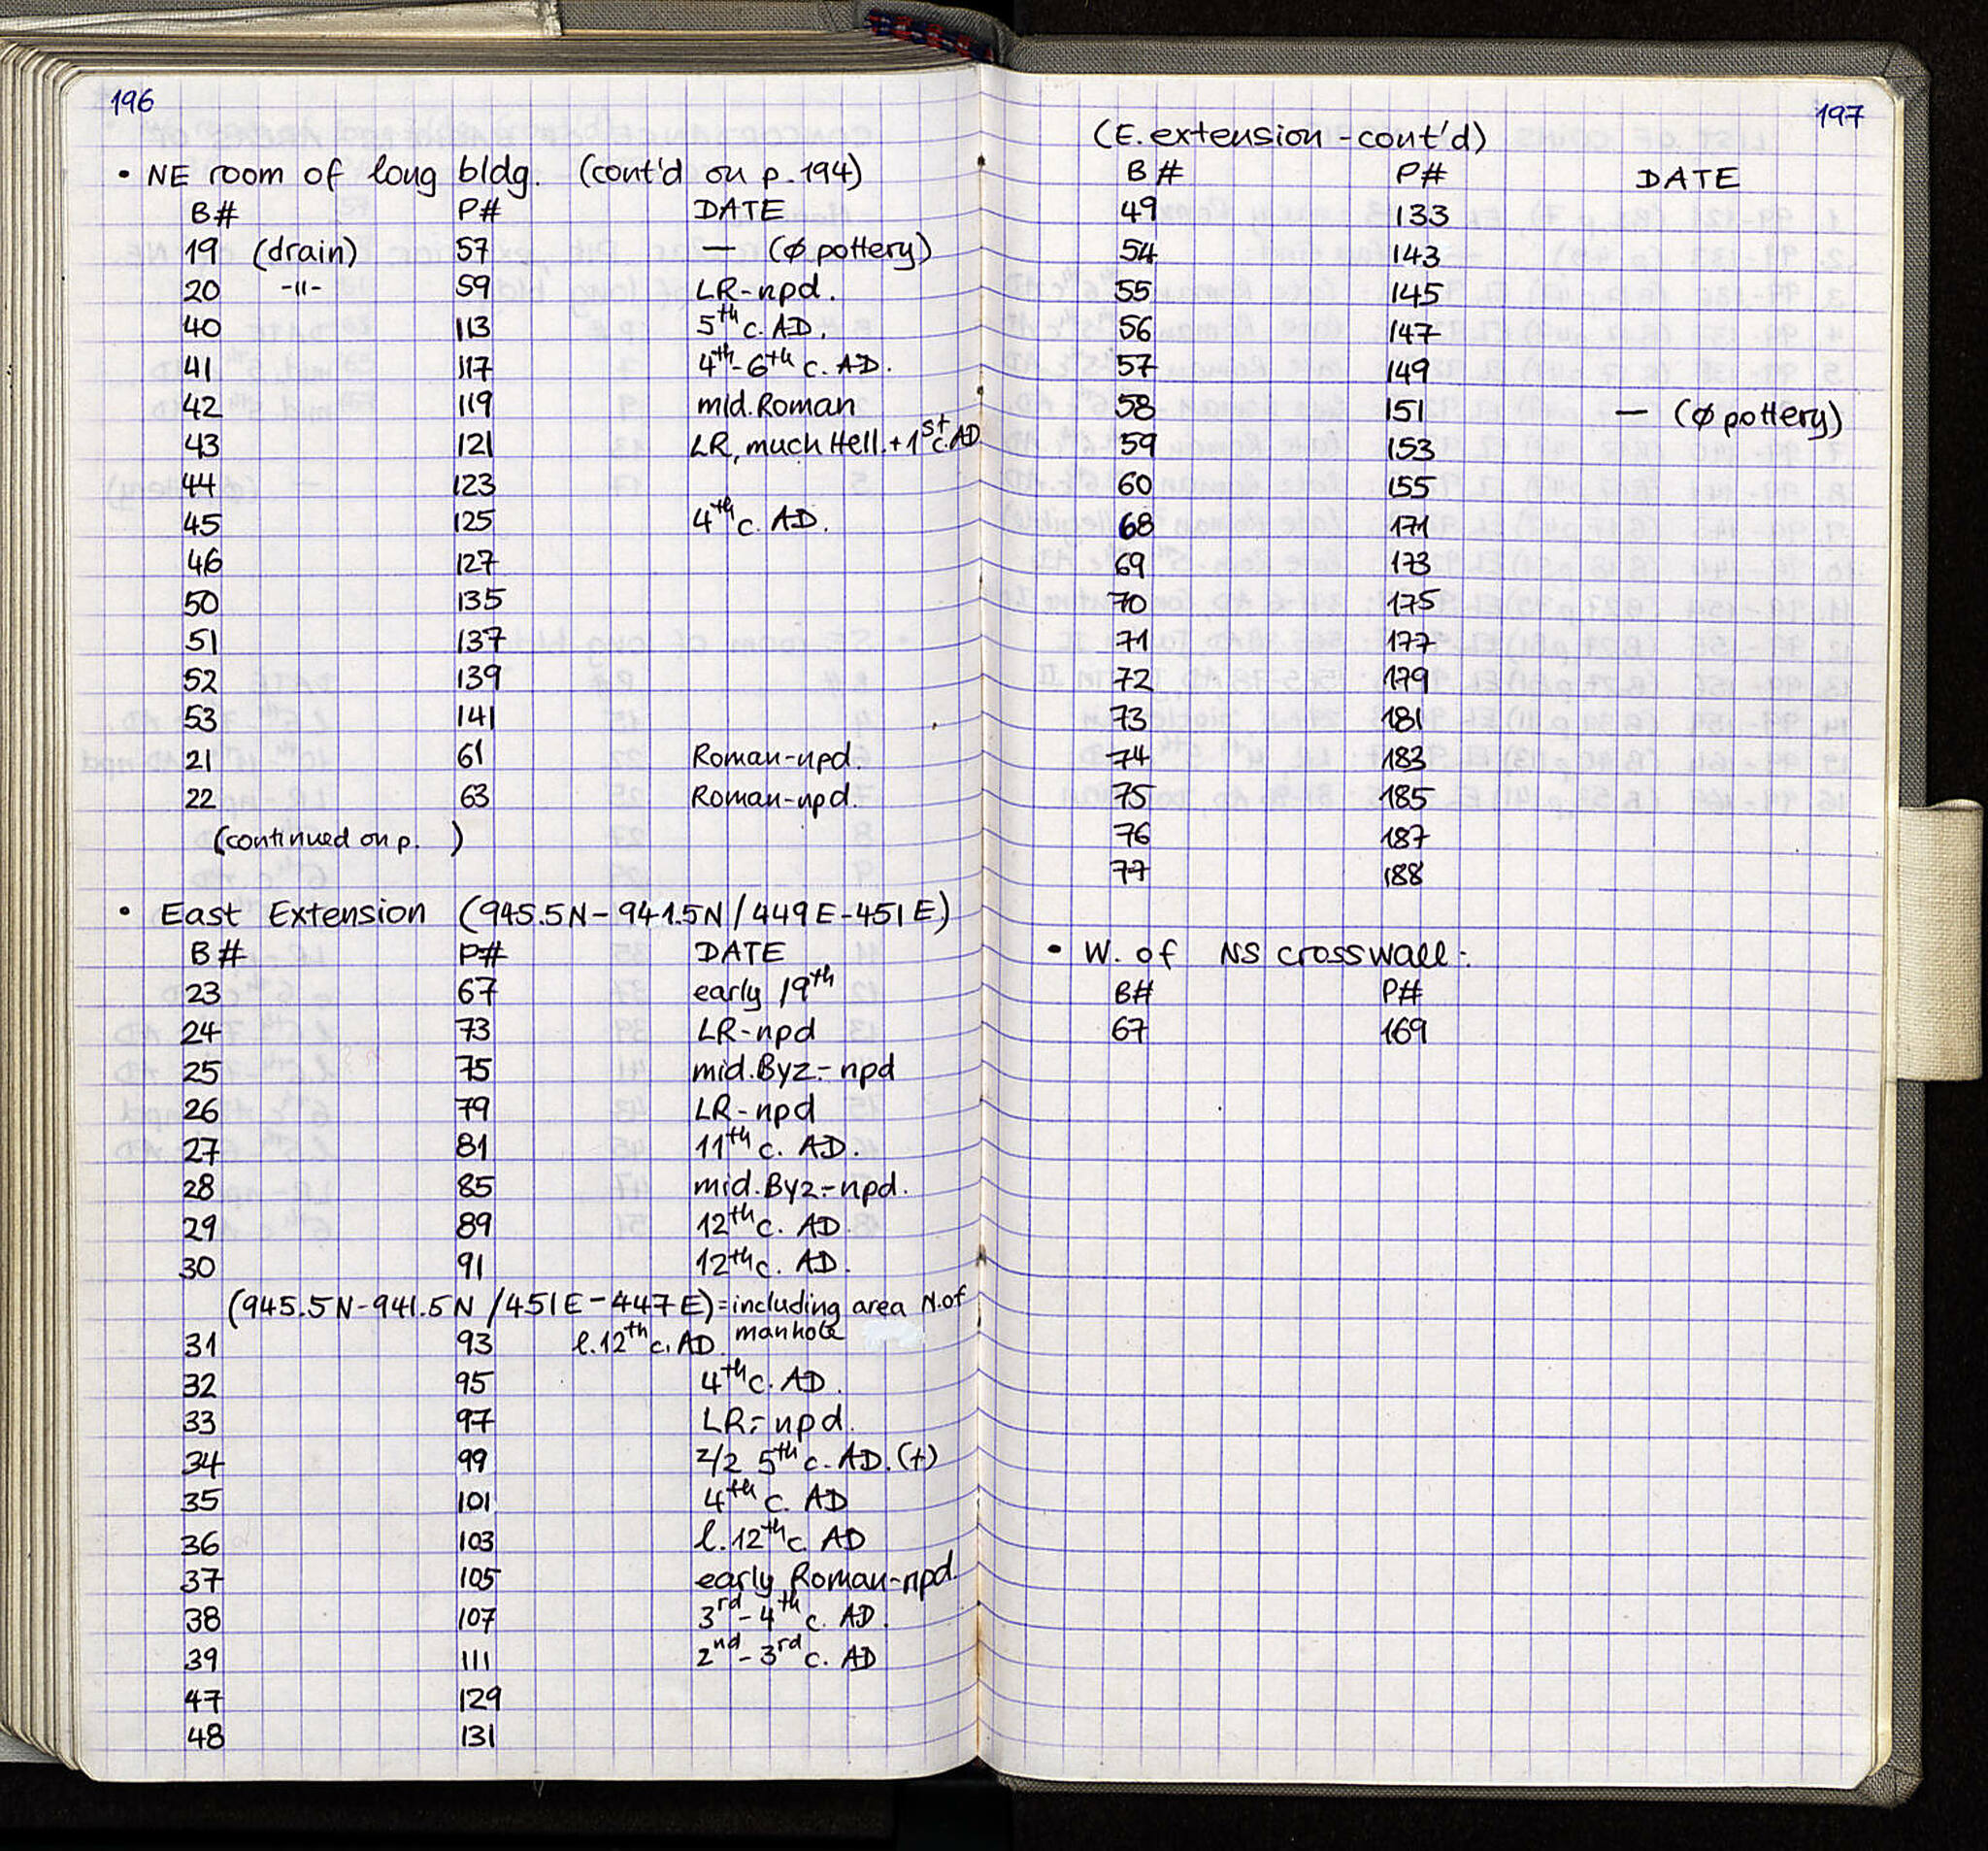 196
• NE room of long bldg. (cont'd on p.194)
B# P# DATE
19 (drain) 57 — (Ø pottery)
20 -11- 59 LR-npd.
40 113 5th c. AD.
41 117 4th-6th c. AD.
42 119 mid. Roman
43 121 LR, much Hell. + 1st c. AD
44 123
45 125 4th c. AD.
46 127
50 135
51 137
52 139
53 141
21 61 Roman-npd.
22 63 Roman-npd.
(continued on p. )
• East Extension (945.5N-941.5N/449E-451E)
B# P# DATE
23 67 early 19th
24 73 LR-npd
25 75 mid.Byz-npd
26 79 LR-npd
27 81 11th c. AD.
28 85 mid.Byz-npd.
29 89 12th c. AD.
30 91 12th c. AD.
(945.5N-941.5N/451E-447E)=including area N.of
manhole
31 93 l.12th c. AD.
32 95 4th c. AD.
33 97 LR-npd.
34 99 2/2 5th c. AD. (+)
35 101 4th c. AD
36 103 l.12th c. AD
37 105 early Roman-npd.
38 107 3rd-4th c. AD.
39 111 2nd-3rd c. AD
47 129
48 131
197
(E. extension-cont'd)
B# P# DATE
49 133
54 143
55 145
56 147
57 149
58 151 — (Ø pottery)
59 153
60 155
68 171
69 173
70 175
71 177
72 179
73 181
74 183
75 185
76 187
77 188
• W. of NS crosswall:
B# P#
67 169